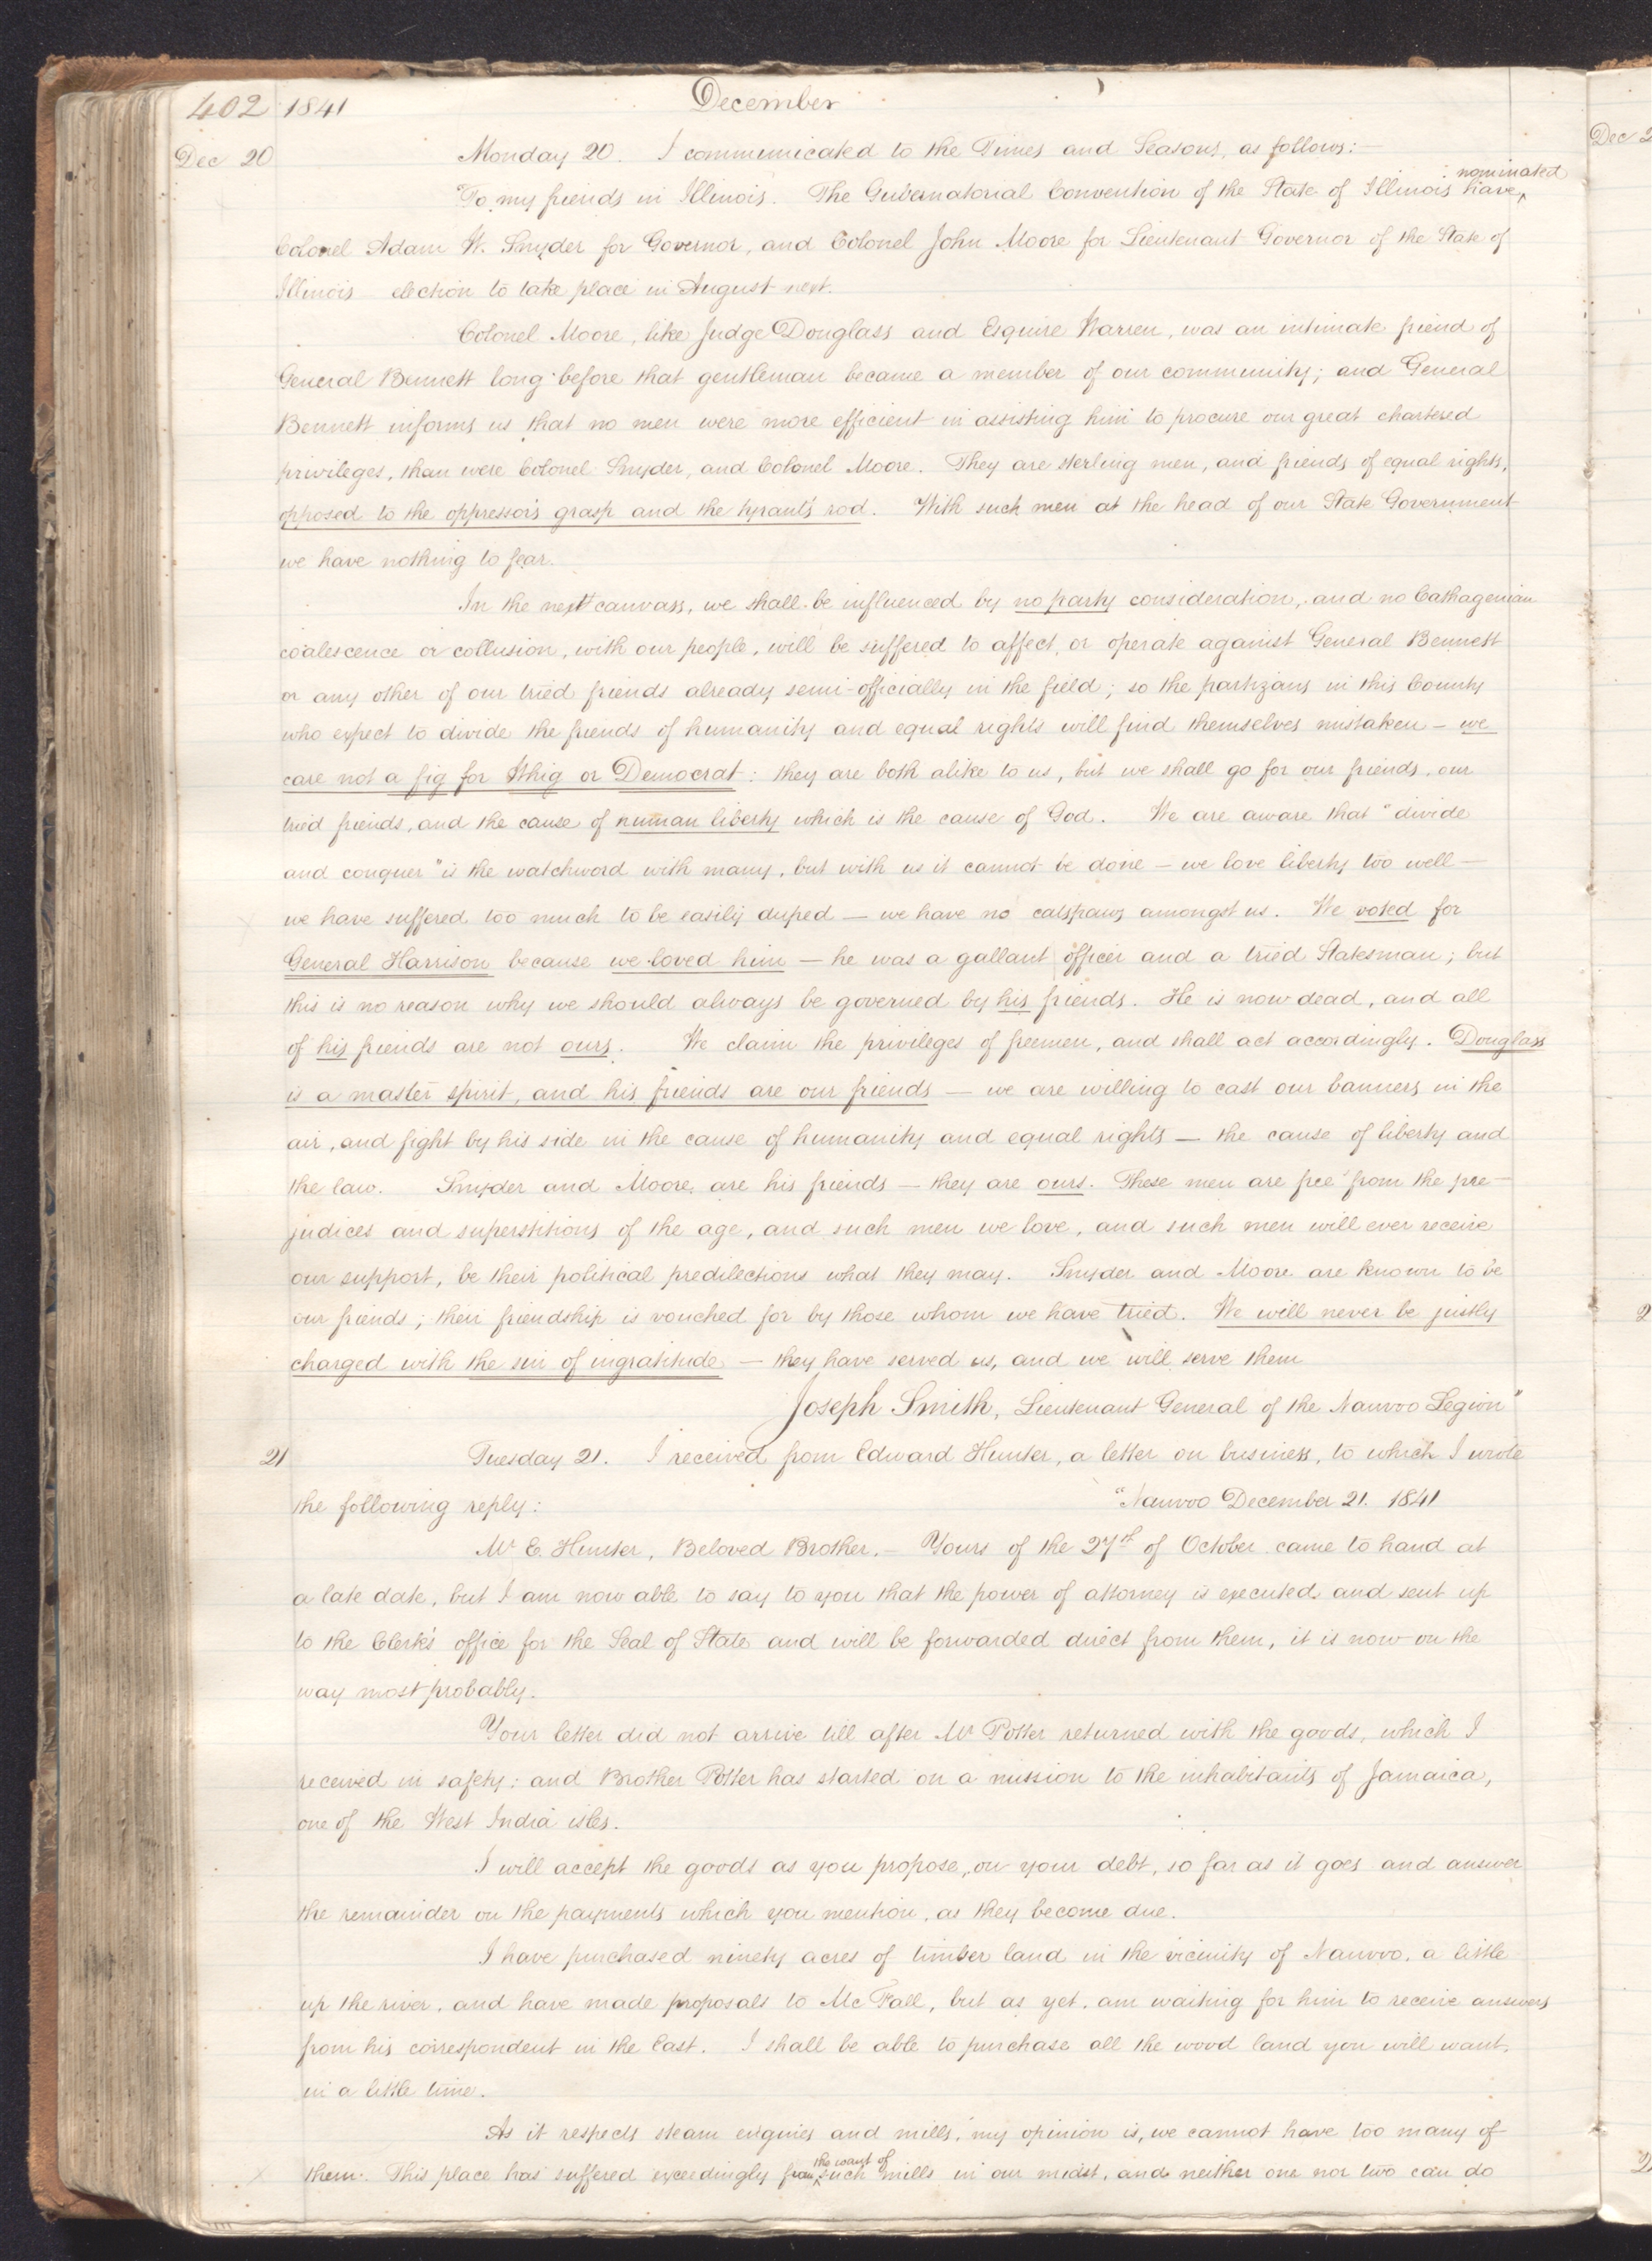 402 1841 December
Dec 20 Monday 20. I communicated to the Times and Seasons, as follows:—
nominated
"To my friends in Illinois. The Gubernatorial Convention of the State of Illinois have ^
Colonel Adam W. Snyder for Governor, and Colonel John Moore for Lieutenant Governor of the State of
Illinois election to take place in August next.
Colonel Moore, like Judge Douglass and Esquire Warren, was an intimate friend of
General Bennett long before that gentleman became a member of our community; and General
Bennett informs us that no men were more efficient in assisting him to procure our great chartered
privileges, than were Colonel Snyder, and Colonel Moore. They are sterling men, and friends of equal rights,
opposed to the oppressor's grasp and the tyrant's rod. With such men at the head of our State Government
we have nothing to fear.
In the next canvass, we shall be influenced by no party consideration, and no Cathagenian
coalescence or collusion, with our people, will be suffered to affect, or operate against General Bennett
or any other of our tried friends already semi-officially in the field; so the partizans in this County
who expect to divide the friends of humanity and equal rights will find themselves mistaken — we
care not a fig for Whig or Democrat: they are both alike to us, but we shall go for our friends, our
tried friends, and the cause of human liberty which is the cause of God. We are aware that "divide
and conquer" is the watchword with many, but with us it cannot be done — we love liberty too well —
we have suffered too much to be easily duped — we have no catspaws amongst us. We voted for
General Harrison because we loved him — he was a gallant officer and a tried Statesman; but
this is no reason why we should always be governed by his friends. He is now dead, and all
of his friends are not ours. We claim the privileges of freemen, and shall act accordingly. Douglass
is a master spirit, and his friends are our friends — we are willing to cast our banners in the
air, and fight by his side in the cause of humanity and equal rights — the cause of liberty and
the law. Snyder and Moore, are his friends — they are ours. These men are free from the pre-
judices and superstitions of the age, and such men we love, and such men will ever receive
our support, be their political predilections what they may. Snyder and Moore are known to be
our friends; their friendship is vouched for by those whom we have tried. We will never be justly
charged with the sin of ingratitude — they have served us, and we will serve them
Joseph Smith, Lieutenant General of the Nauvoo Legion"
21 Tuesday 21. I received from Edward Hunter, a letter on business, to which I wrote
the following reply: "Nauvoo December 21. 1841
Mr. E. Hunter, Beloved Brother.— Yours of the 27th of October came to hand at
a late date, but I am now able to say to you that the power of attorney is executed and sent up
to the Clerk's office for the Seal of State and will be forwarded direct from them, it is now on the
way most probably.
Your letter did not arrive till after Mr Potter returned with the goods, which I
received in safety: and Brother Potter has started on a mission to the inhabitants of Jamaica,
one of the West India isles.
I will accept the goods as you propose, on your debt, so far as it goes and answer
the remainder on the payments which you mention, as they become due.
I have purchased ninety acres of timber land in the vicinity of Nauvoo, a little
up the river, and have made proposals to McFall, but as yet, am waiting for him to receive answers
from his correspondent in the East. I shall be able to purchase all the wood land you will want,
in a little time.
As it respects steam engines and mills, my opinion is, we cannot have too many of
the want of
them. This place has suffered exceedingly from ^ such mills in our midst, and neither one nor two can do
Dec 2
2
2